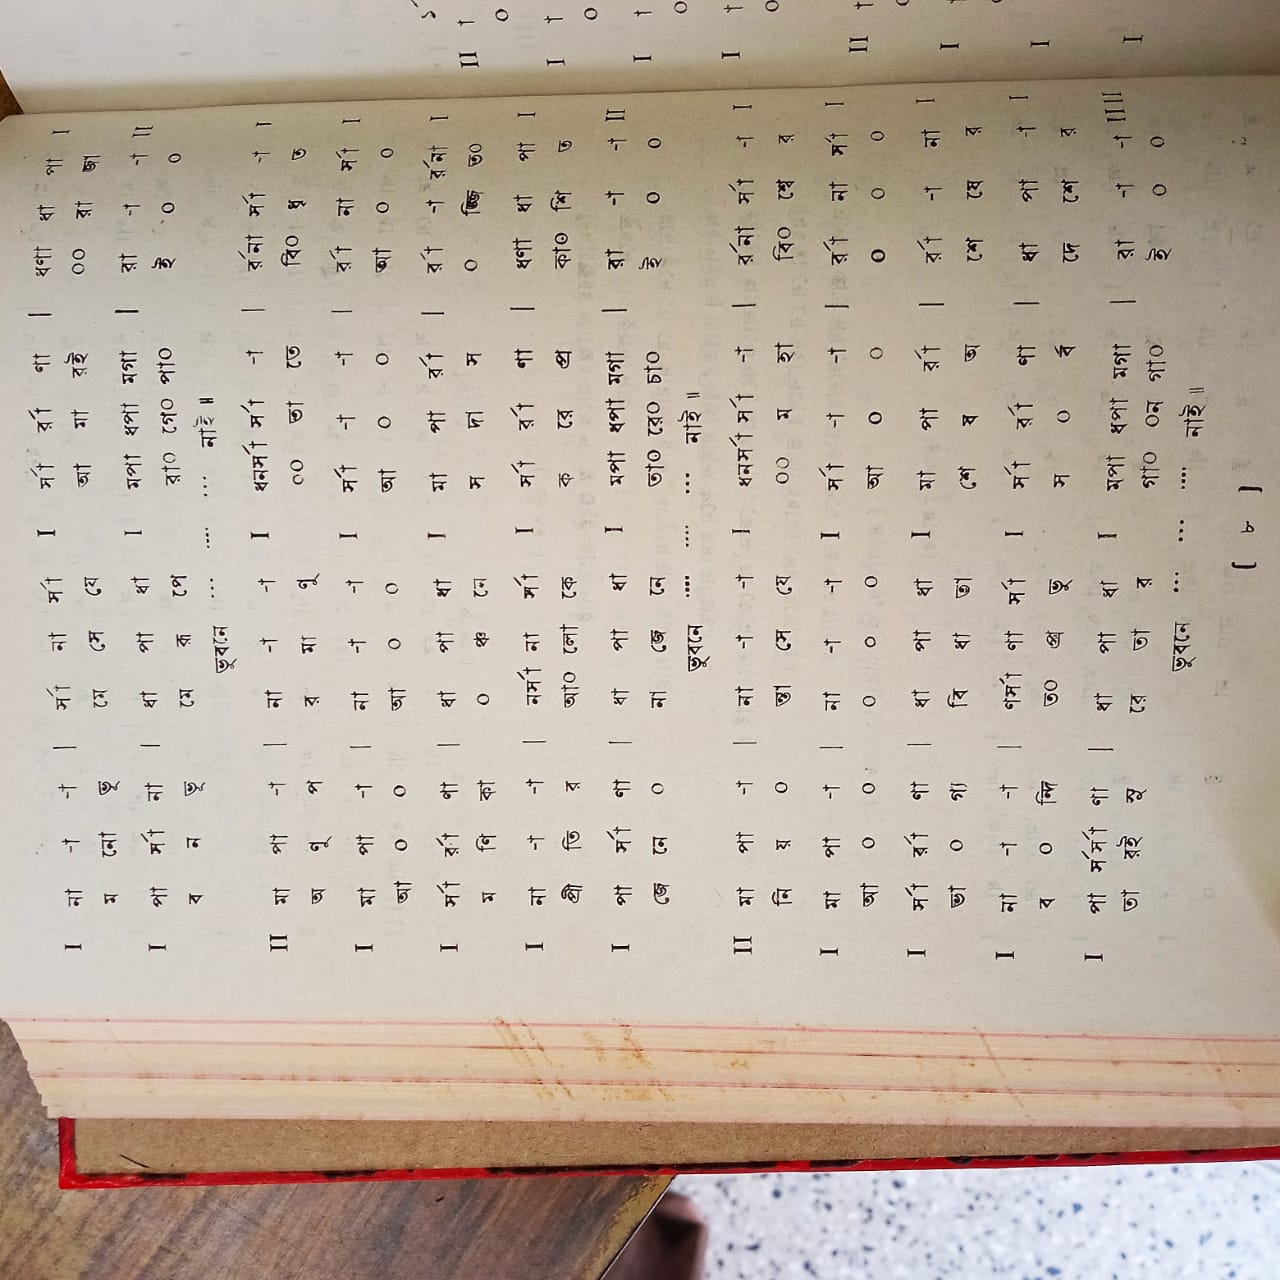 I না -া -া | র্সা না র্সা I র্সা র্রা ণা | ধণা ধা পা I
ম নো ভু মে সে যে আ মা রই ০০ রা জা
I পা র্সা না | ধা পা ধা I মপা ধপা মগা | রা -া -া II
ব ন ভু মে রূ পে রা০ গে০ পা০ ই ০ ০
ভুবনে ... .... ... নাই॥
II মা পা -া | না -া -া I ধনর্সা র্সা -া | র্রনা র্সা -া I
অ ণু প র মা ণু ০০ তা তে বি০ ধৃ ত
I মা পা -া | না -া -া I র্সা -া -া | র্রা না র্সা I
আ ০ ০ আ ০ ০ আ ০ ০ আ ০ ০
I র্সা র্রা ণা | ধা পা ধা I মা পা র্রা | র্রা -া র্রনা I
ম ণি কা ০ ঞ্চ নে স দা স ০ জ্জি ত০
I না -া -া | নর্সা না র্সা I র্সা র্রা ণা | ধণা ধা পা I
প্রী তি র আ০ লো কে ক রে প্র কা০ শি ত
I পা র্সা ণা | ধা পা ধা I মপা ধপা মগা | রা -া -া II
জে নে ০ না জে নে তা০ রে০ চা০ ই ০ ০
ভুবনে .... .... ... নাই॥
II মা পা -া | না -া -া I ধনর্সা র্সা -া | র্রনা র্সা -া I
নি য় ০ ন্তা সে যে ০০ ম হা বি০ শ্বে র
I মা পা -া | না -া -া I র্সা -া -া | র্রা না র্সা I
আ ০ ০ ০ ০ ০ আ ০ ০ ০ ০ ০
I র্সা র্রা ণা | ধা পা ধা I মা পা র্রা | র্রা -া না I
ভা ০ গ্য বি ধা তা শে ষ অ শে ষে র
I না -া -া | ণর্সা ণা র্সা I র্সা র্রা ণা | ধা পা -া I
ব ০ ন্দি ত০ প্র ভু স ০ র্ব দে শে র
I পা র্সর্সা ণা | ধা পা ধা I মপা ধপা মগা | রা -া -া IIII
তা রই সু রে তা র গা০ ০ন গা০ ই ০ ০
ভুবনে ... ... .... নাই॥
[ ৮ ]